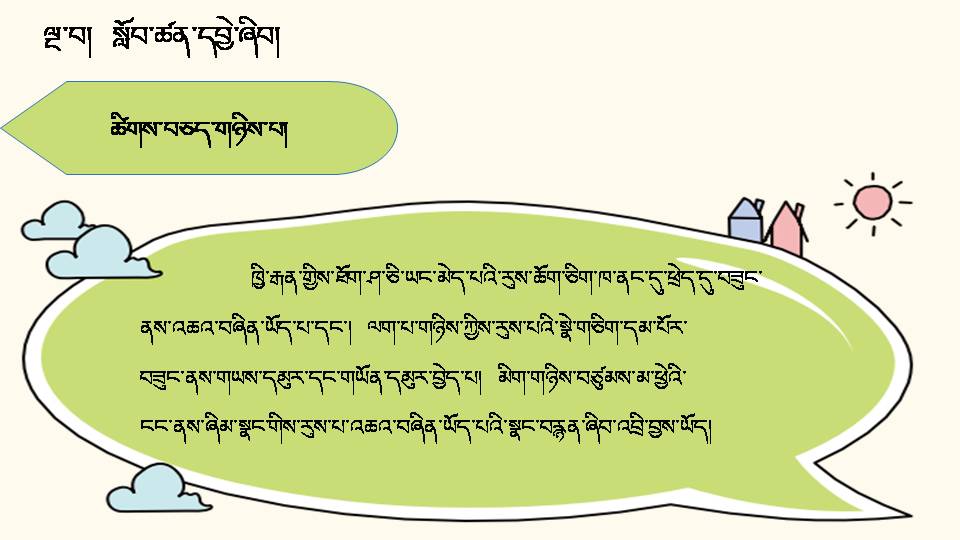 ལྔ་བ།  སློབ་ཚན་དབྱེ་ཞིབ།
ཚིགས་བཅད་གཉིས་པ།
ཁྱི་རྒན་གྱིས་ཐོག་ཤ་ཅི་ཡང་མེད་པའི་རུས་ཚོག་ཅིག་ཁ་ནང་དུ་ཕྲེད་དུ་བཟུང་
ནས་འཆའ་བཞིན་ཡོད་པ་དང་།  ལག་པ་གཉིས་ཀྱིས་རུས་པའི་སྣེ་གཅིག་དམ་པོར་
བཟུང་ནས་གཡས་དམུར་དང་གཡོན་དམུར་བྱེད་པ།  མིག་གཉིས་བཙུམས་མ་ཕྱེའི་
ངང་ནས་ཞིམ་སྣང་གིས་རུས་པ་འཆའ་བཞིན་ཡོད་པའི་སྣང་བརྙན་ཞིབ་འབྲི་བྱས་ཡོད།